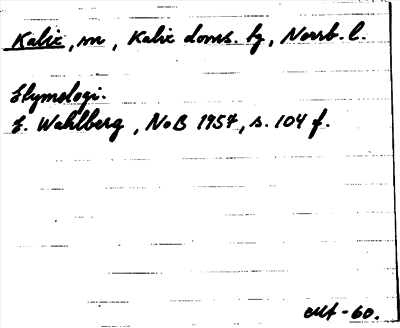 Kalix, sn, Kalix doms. hg, Norrb. l.
Etymologi.
E. Wahlberg, NoB 1957, s. 104 f.
-60.